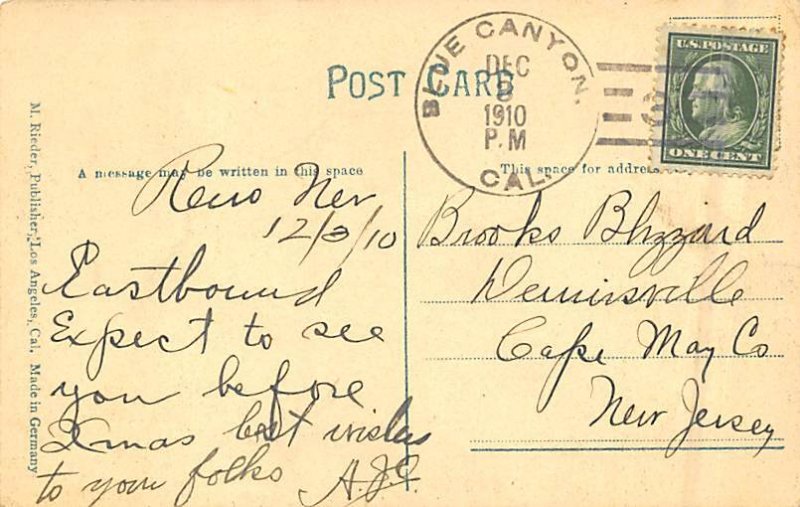 POST CARD
BLUE CANYON,
DEC
1910
P.M
CAL.
U.S. POSTAGE
ONE CENT
A message may be written in this space
This space for address
M. Rieder, Publisher, Los Angeles, Cal. Made in Germany
Reno Nev
12/3/10
Eastbound
Expect to see
you before
Xmas best wishes
to your folks
Brooks Blizzard
Dennisville
Cape May Co
New Jersey